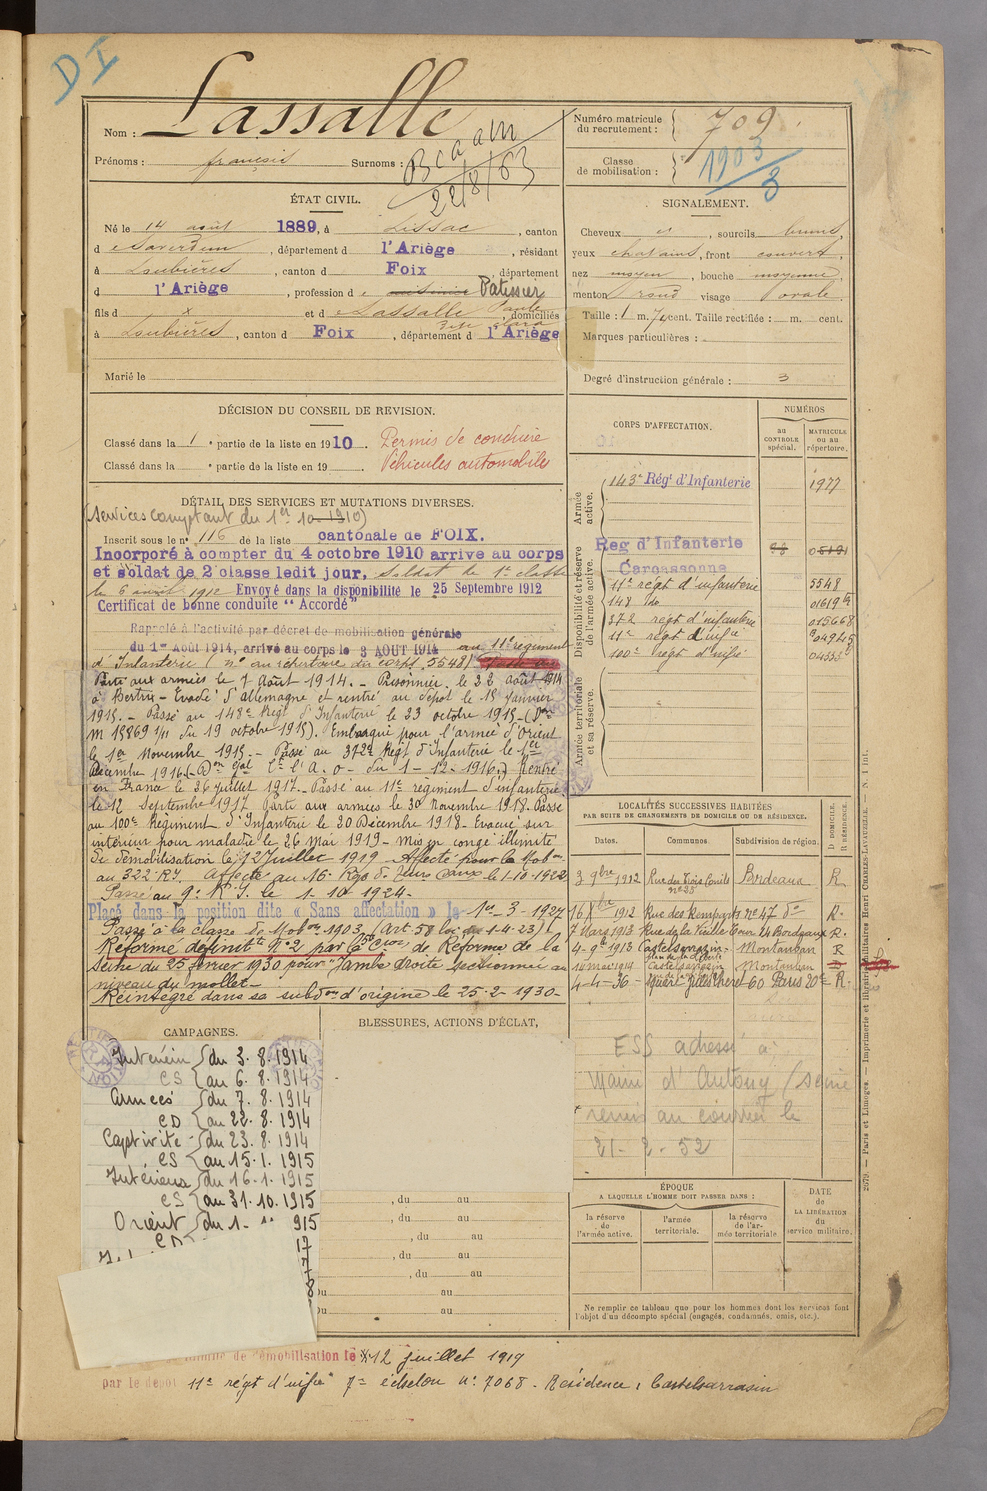 DI
Nom : Lassalle
Prénoms : françois Surnoms :
22/8/63
Numéro matricule du recrutement : 709.
Classe de mobilisation : 1903/3
ÉTAT CIVIL.
Né le 14 août 1889, à Lissac, canton
d e Saverdun, département d l'Ariège, résidant
à Loubières, canton d Foix, département
d l'Ariège, profession d e Patissier
fils d x et d e Lassalle Paule, domiciliés
à Loubières, canton d Foix, département d l'Ariège
Marié le
SIGNALEMENT.
Cheveux et, sourcils bruns,
yeux chatains, front couvert,
nez moyen, bouche moyenne,
menton rond visage ovale.
Taille : 1 m. 74 cent. Taille rectifiée : m. cent.
Marques particulières :
Degré d'instruction générale : 3
DÉCISION DU CONSEIL DE REVISION.
Classé dans la 1e partie de la liste en 1910. Permis de conduire
Classé dans la e partie de la liste en 19 Véhicules automobiles
DÉTAIL DES SERVICES ET MUTATIONS DIVERSES.
(Services comptant du 1er 10-1910)
Inscrit sous le n° 116 de la liste cantonale de FOIX.
Incorporé à compter du 4 octobre 1910 arrivé au corps
et soldat de 2 classe ledit jour, soldat de 1e classe
le 6 avril 1912 Envoyé dans la disponibilité le 25 Septembre 1912
Certificat de bonne conduite "Accordé"
Rappelé à l'activité par décret de mobilisation générale
du 1er Août 1914, arrivé au corps le 3 AOUT 1914 au 11e régiment
d'Infanterie (n° au répertoire du corps 5548)
Parti aux armées le 7 août 1914. - Prisonnier, le 22 août 1914
à Bertrix - Evadé d'Allemagne et rentré au dépôt le 15 Janvier
1915. - Passé au 148e Régt d'Infanterie le 23 octobre 1915 - (Don
M 15869 1/11 du 19 octobre 1915). Embarqué pour l'armée d'Orient
le 1er Novembre 1915. - Passé au 372e Régt d'Infanterie le 1er
Décembre 1916. (Don Gal Ct l'A. O - du 1-12-1916.) Rentré
en France le 26 juillet 1917. - Passé au 11e régiment d'infanterie
le 12 Septembre 1917 Parti aux armées le 30 Novembre 1918. Passé
au 100e Régiment d'Infanterie le 30 Décembre 1918 - Evacué sur
intérieur pour maladie le 26 Mai 1919 - Mis en congé illimité
de démobilisation le 12 Juillet 1919 - Affecté pour la Mobon
au 322 R.I. Affecté au 16e Rég
Passé au 9e R.I. le 1-10-1924 -
Placé dans la position dite « Sans affectation » le 1er-3-1927
Passé à la classe de Mobon 1903 (Art 58 loi du 1-4-23) L
Réformé définitt N°2 par Con de Réforme de la
Seine du 25 février 1930 pour "Jambe droite sectionnée au
niveau du mollet -
Réintégré dans sa subdon d'origine le 25-2-1930 -
CORPS D'AFFECTATION.
NUMÉROS
au CONTROLE spécial.
MATRICULE ou au répertoire.
Armée active.
143e Régt d'Infanterie 1977
Disponibilité et réserve de l'armée active.
Reg d'Infanterie
Carcassonne
11e régt d'infanterie 5548
148 do 01619
372 régt d'infanterie 015668
11e régt d'infie 04945
100e régt d'infie
Armée territoriale et sa réserve.
LOCALITÉS SUCCESSIVES HABITÉES
PAR SUITE DE CHANGEMENTS DE DOMICILE OU DE RÉSIDENCE.
Dates. Communes. Subdivision de région. D DOMICILE. R RÉSIDENCE.
3 9bre 1912 Rue des Trois Conils n°25 Bordeaux R.
16 Xbre 1912 Rue des Remparts n° 47 do R.
7 Mars 1913 Rue de la Vieille Tour 24 Bordeaux R.
4-9e 1913 Castelsarrasin - Montauban R
14 mai 1914 Castelsarrasin Montauban D
4-4-36 - square Jules Cheret 60 Paris 20e R.
ESS adressé à
Mairie d'Antony (Seine
remis au courrier le
21-2-52
CAMPAGNES.
Intérieur du 3.8.1914
CS au 6.8.1914
Armées du 7.8.1914
CD au 22.8.1914
Captivité du 23.8.1914
CS au 15.1.1915
Intérieur du 16.1.1915
CS au 31.10.1915
Orient du 1- 915
CD 17
BLESSURES, ACTIONS D'ÉCLAT,
, du au
, du au
, du au
, du au
, du au
Du au
Du au
ÉPOQUE
A LAQUELLE L'HOMME DOIT PASSER DANS :
la réserve de l'armée active.
l'armée territoriale.
la réserve de l'armée territoriale
DATE de LA LIBÉRATION du service militaire.
Ne remplir ce tableau que pour les hommes dont les services font
l'objet d'un décompte spécial (engagés, condamnés, omis, etc.).
2579. — Paris et Limoges. — Imprimerie et librairie militaires Henri CHARLES-LAVAUZELLE. — N. 1 int.
de démobilisation le 12 juillet 1919
par le dépôt 11e régt d'infie 7e échelon n° 7068. Résidence : Castelsarrasin